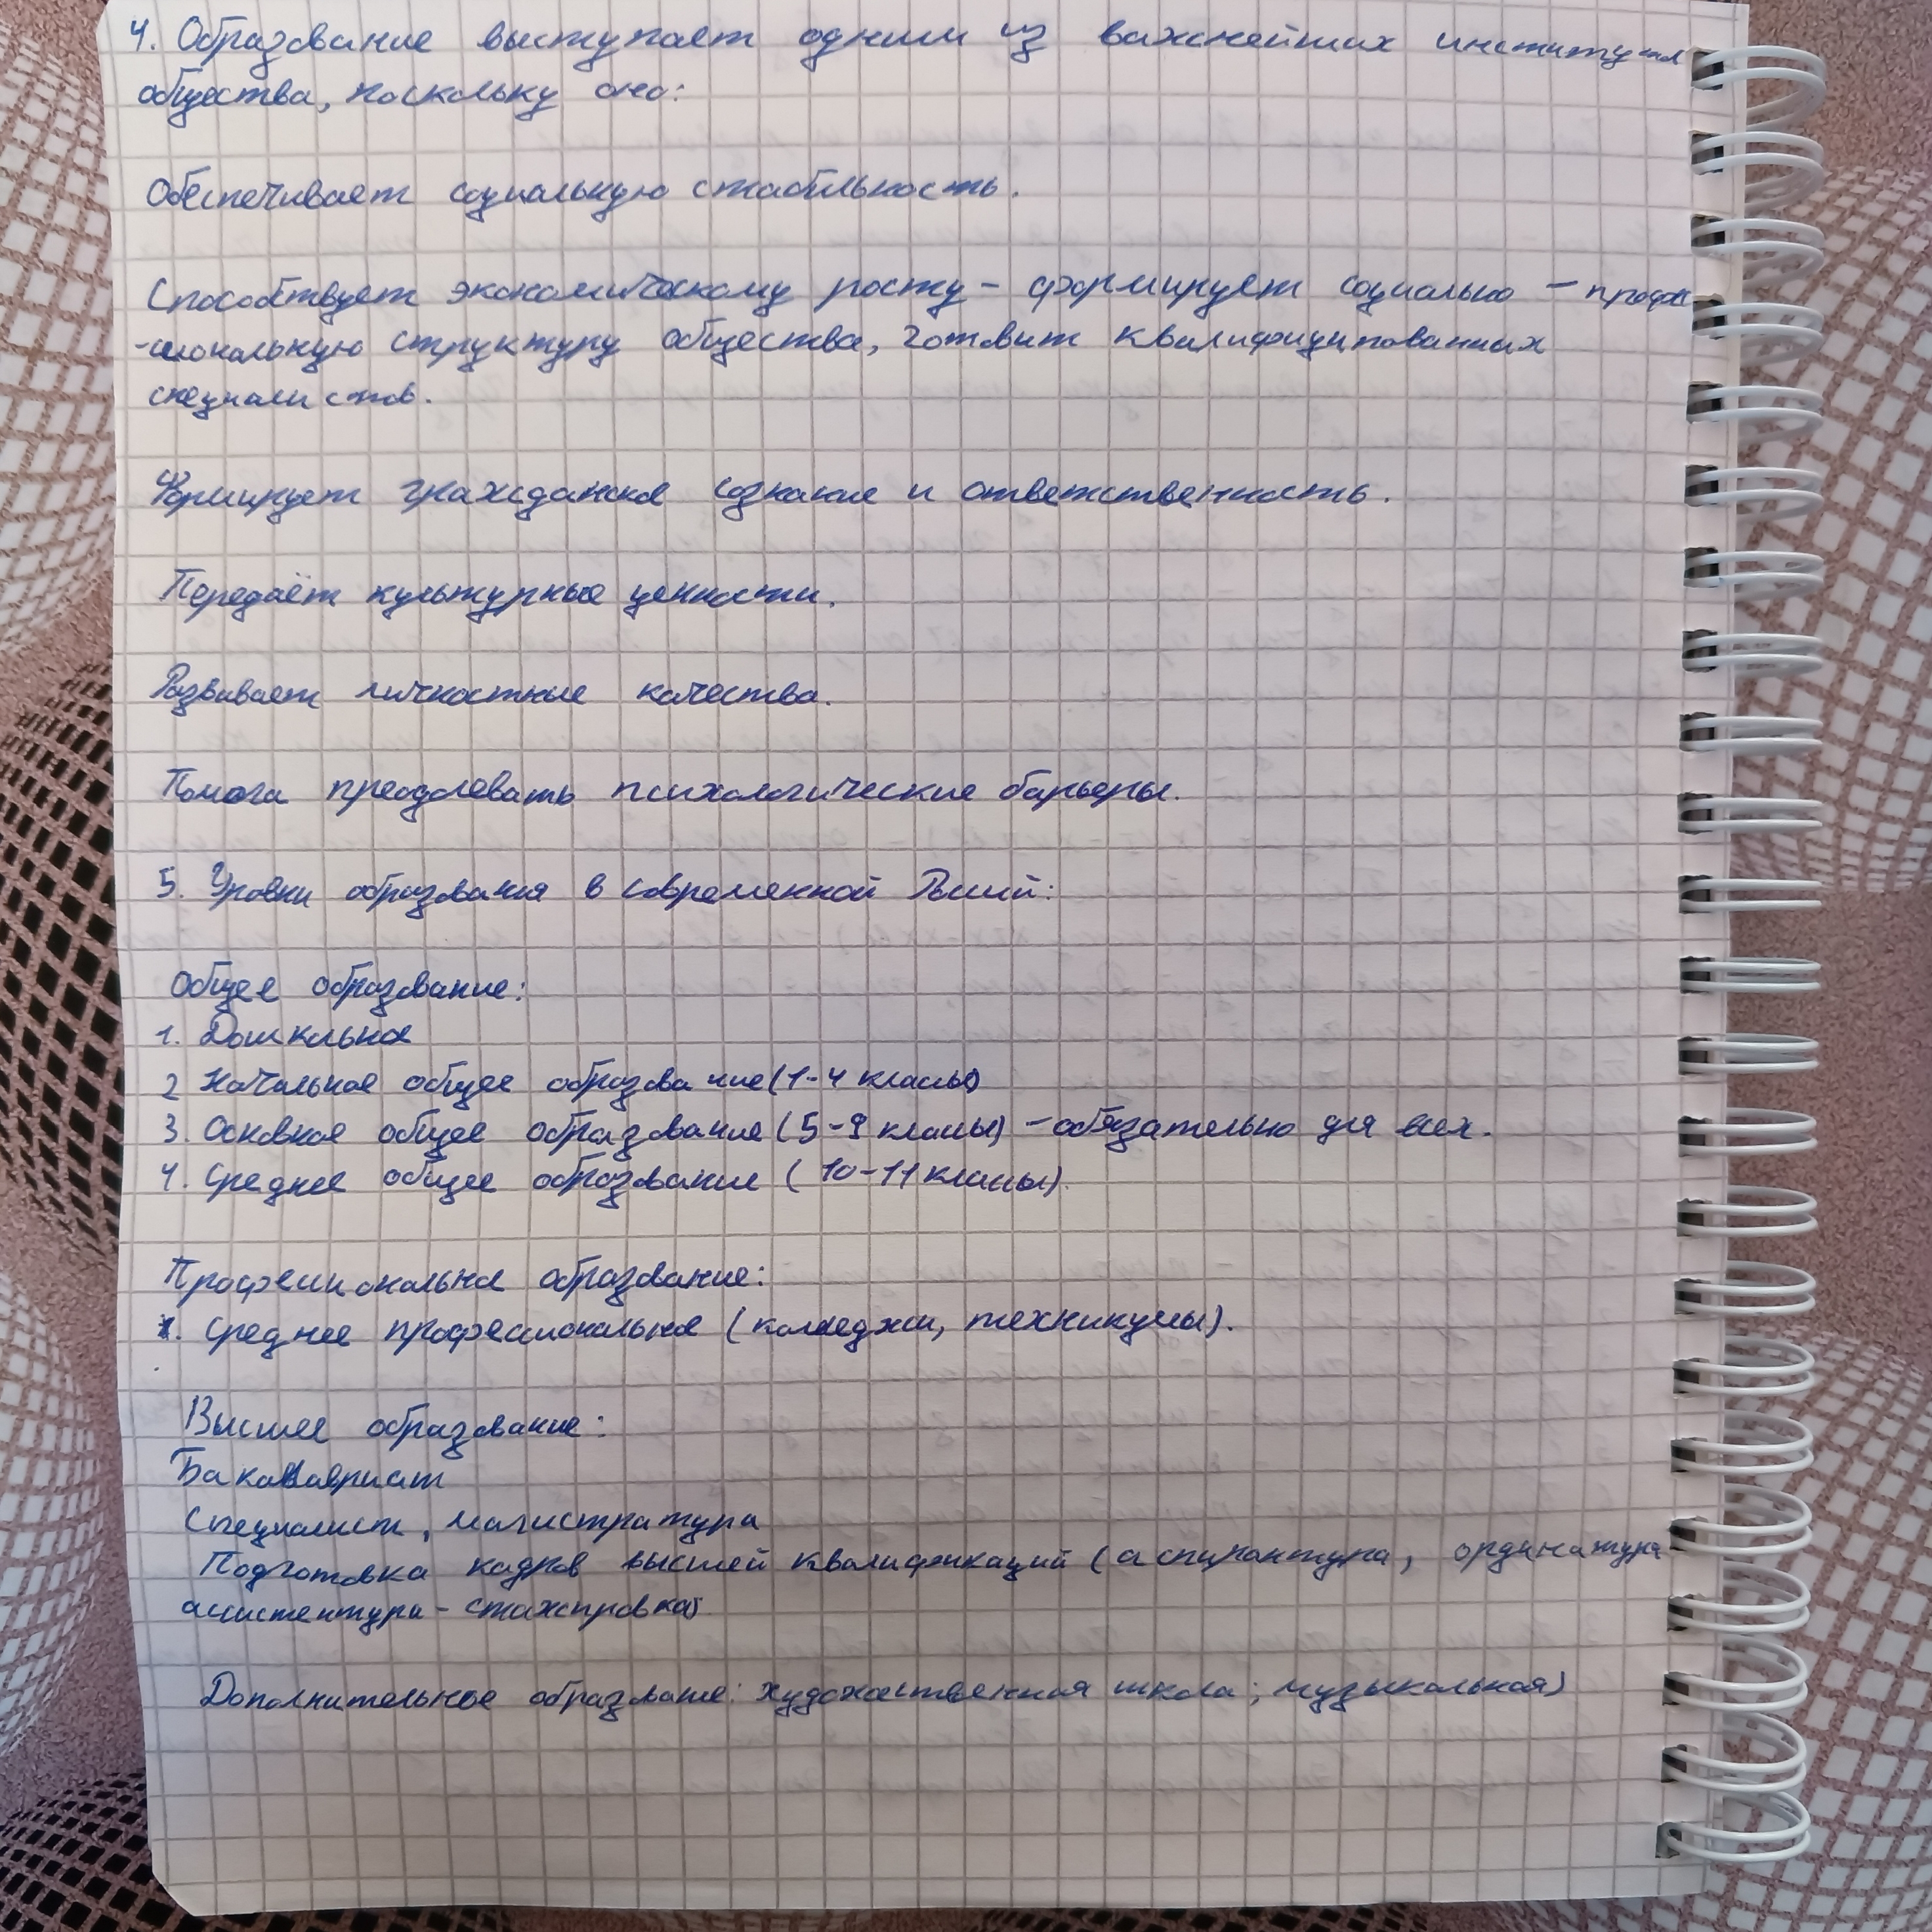 4. Образование выступает одним из важнейших институтов
общества, поскольку оно:
Обеспечивает социальную стабильность.
Способствует экономическому росту - формирует социально - профес
-сиональную структуру общества, готовит квалифицированных
специалистов.
Формирует гражданское сознание и ответственность.
Передаёт культурные ценности.
Развивает личностные качества.
Помога преодолевать психологические барьеры.
5. Уровни образования в современной России:
Общее образование:
1. Дошкольное
2 Начальное общее образование (1-4 классы)
3. Основное общее образование (5-9 классы) - обязательно для всех.
4. Среднее общее образование (10-11 классы).
Профессиональное образование:
1. Среднее профессиональное (колледжи, техникумы).
Высшее образование:
Бакалавриат
Специалист, магистратура
Подготовка кадров высшей квалификаций (аспирантура, ординатура
ассистентура - стажировка)
Дополнительное образование: художественная школа; музыкальная)